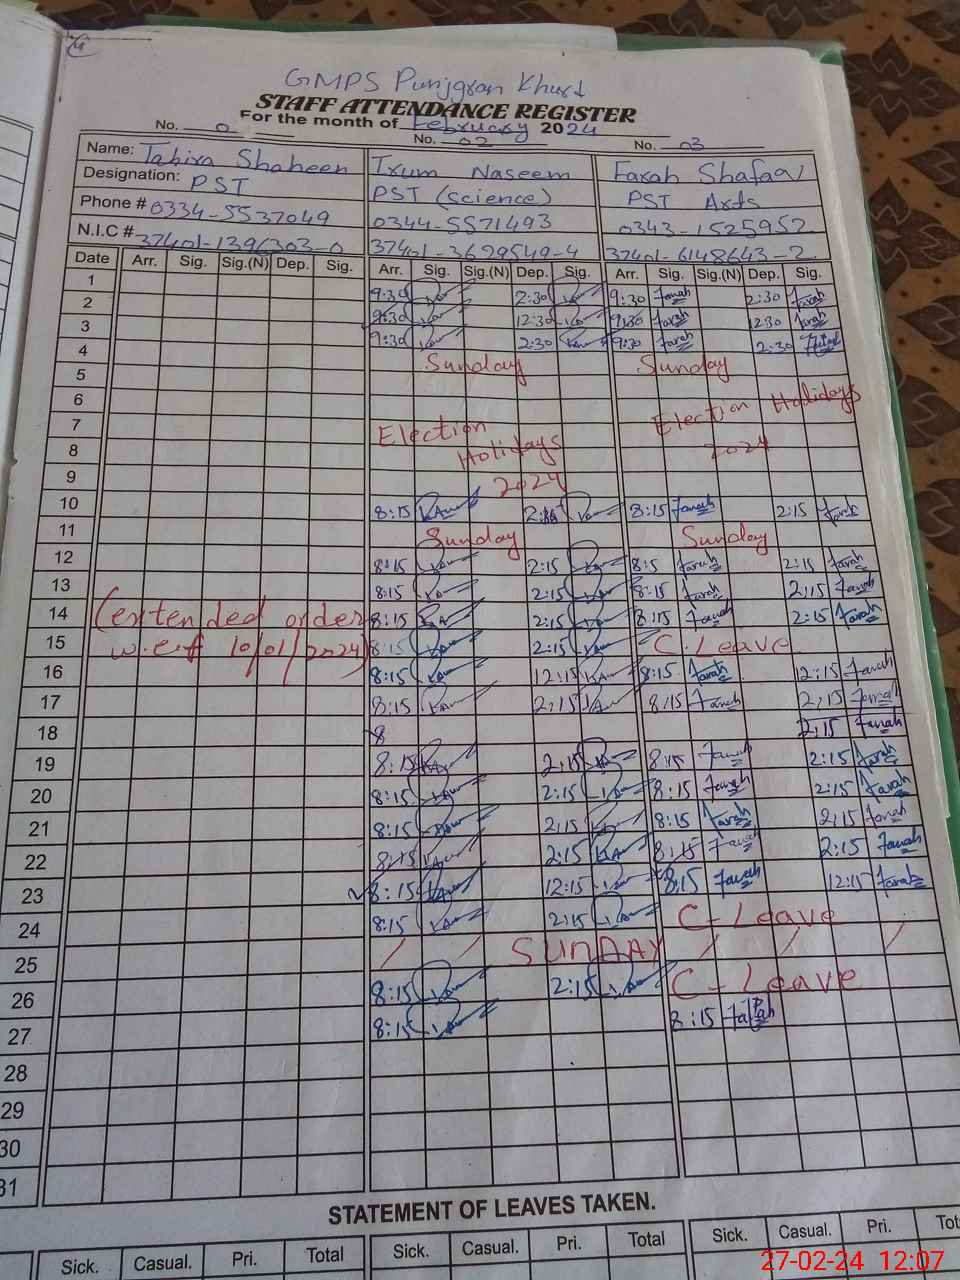 4
GMPS Punjgran Khurd
STAFF ATTENDANCE REGISTER
For the month of February 2024
No. 0 No. 02 No. 03
Name: Tahira Shaheen Irum Naseem Farah Shafaq
Designation: PST PST (science) PST Arts
Phone # 0334-5537049 0344-5571493 0343-1525952
N.I.C # 37401-1396303-0 37401-3629549-4 37401-6148643-2
Date Arr. Sig. Sig.(N) Dep. Sig. Arr. Sig. Sig.(N) Dep. Sig. Arr. Sig. Sig.(N) Dep. Sig.
1 9:30 2:30 9:30 Farah 2:30 Farah
2 9:30 12:30 9:30 Farah 12:30 Farah
3 9:30 2:30 9:30 Farah 2:30
4 Sunday Sunday
5
6 Election Holidays
7 Election 2024
8 Holidays
9 2024
10 8:15 8:15 Farah 2:15 Farah
11 Sunday Sunday
12 8:15 2:15 8:5 Farah 2:15 Farah
13 8:15 2:15 8:15 Farah 2:15 Farah
14 (extended order 8:15 2:15 8:15 Farah 2:15 Farah
15 w.e.f 10/01/2024) 8:15 2:15 C.Leave
16 8:15 12:15 8:15 Farah 12:15 Farah
17 8:15 2:15 8:15 Farah 2:15 Farah
18 8 2:15 Farah
19 8:15 2:15 8:15 Farah 2:15 Farah
20 8:15 2:15 8:15 Farah 2:15 Farah
21 8:15 2:15 8:15 Farah 2:15 Farah
22 8:15 2:15 8:15 Farah 2:15 Farah
23 8:15 12:15 8:15 Farah 12:15 Farah
24 8:15 2:15 C-Leave
25 / / SUNDAY / / /
26 8:15 2:15 C-Leave
27 8:15 8:15 Farah
28
29
30
31
STATEMENT OF LEAVES TAKEN.
Sick. Casual. Pri. Total Sick. Casual. Pri. Total Sick. Casual. Pri.
27-02-24 12:07